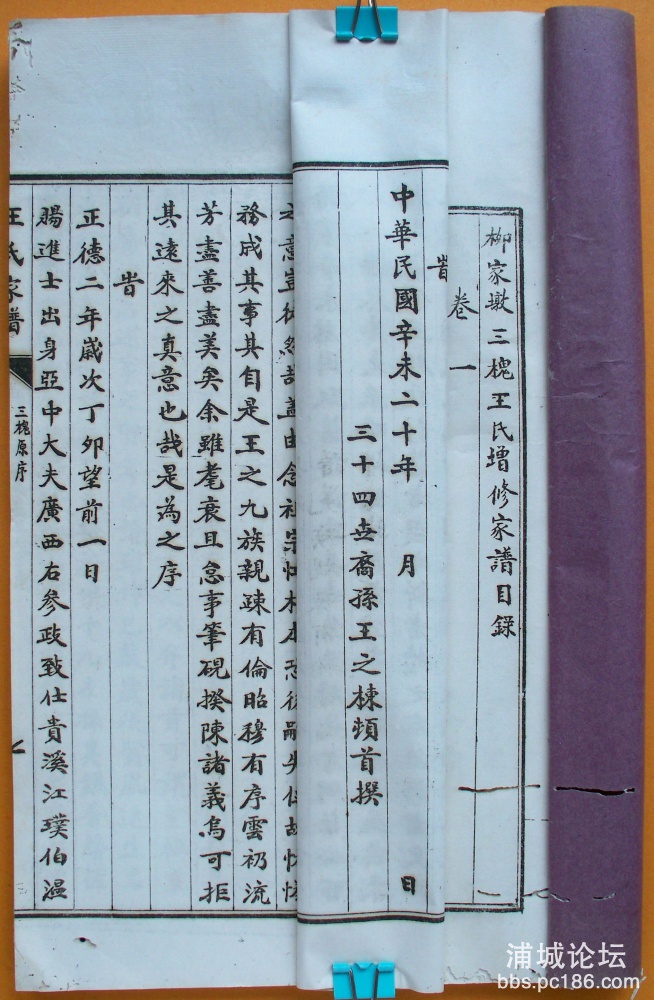 柳家墩三槐王氏增修家譜目錄
卷一
旹
中華民國辛未二十年　月　日
三十四世裔孫王之棟頓首撰
務成其事其自是王之九族親疎有倫昭穆有序雲礽流
芳盡善盡美矣余雖耄衰且怠事筆硯揆陳諸義烏可拒
其遠來之真意也哉是為之序
旹
正德二年歲次丁夘望前一日
賜進士出身亞中大夫廣西右參政致仕貴溪江璞伯溫
王氏家譜
三槐原序
浦城论坛
bbs.pc186.com